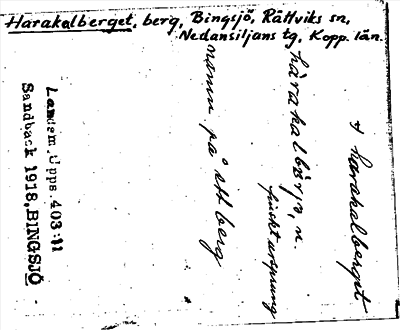 Harakalberget, berg, Bingsjö, Rättviks sn,
Nedansiljans tg, Kopp. län.
† harakalberget
hàrakalbärjə, n.
finskt ursprung
namn på ett berg
Landsm. Upps. 403:11
Sandbäck 1918. BINGSJÖ